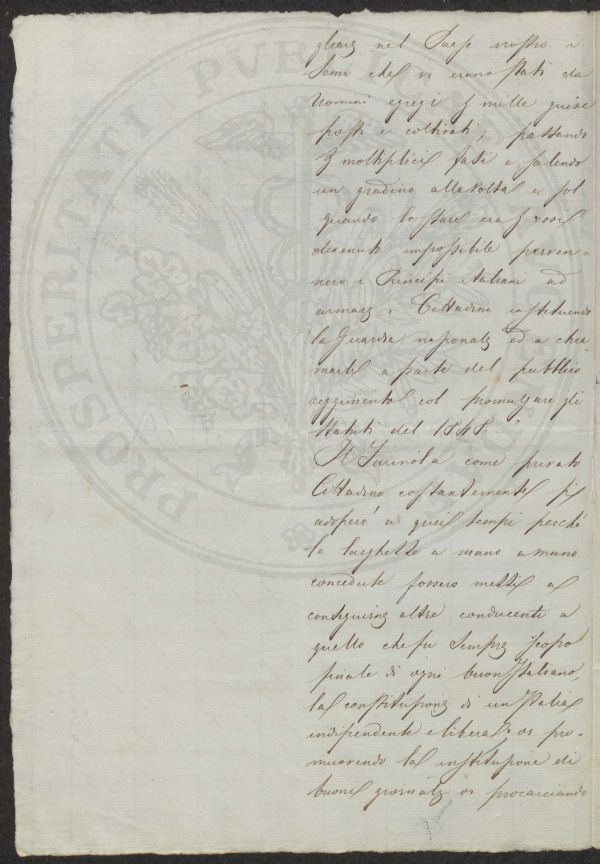 gliare nel Paese nostro i
semi che vi erano stati da
Uomini egregi p mille guise
posti e coltivati; passando
p moltiplici fasi e salendo
un gradino alla volta e sol
quando lo stare era p essi
divenuto impossibile perven-
nero i Principi italiani ad
armare i Cittadini instituendo
la Guardia nazionale ed a chia
marli a parte del pubblico
reggimento col promulgare gli
Statuti del 1848.
Il come privato
Cittadino costantemente si
adoperò a quei tempi perché
le larghezze a mano a mano
concedute fossero mezzi a
conseguirne altre conducenti a
quello che fu sempre scopo
finale di ogni buon Italiano,
la constituzione di un Italia
indipendente e libera; or pro-
muovendo la instituzione di
buoni giornali or procacciando
PROSPERITATI PUBLICAE